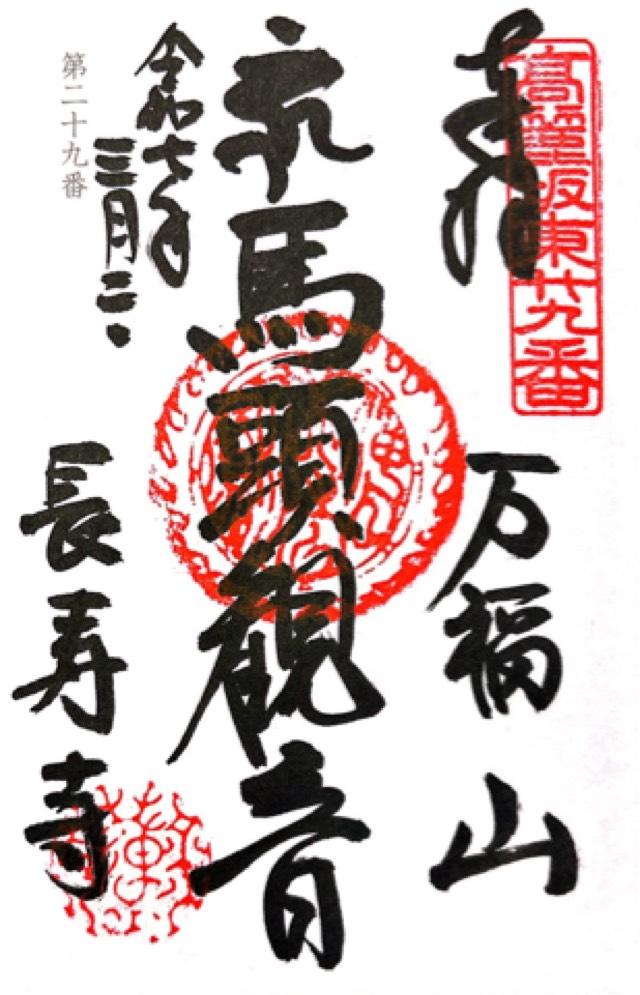 高麗坂東廿九番
奉拝
万福山
馬頭観音
令和七年
三月二日
長寿寺
第二十九番